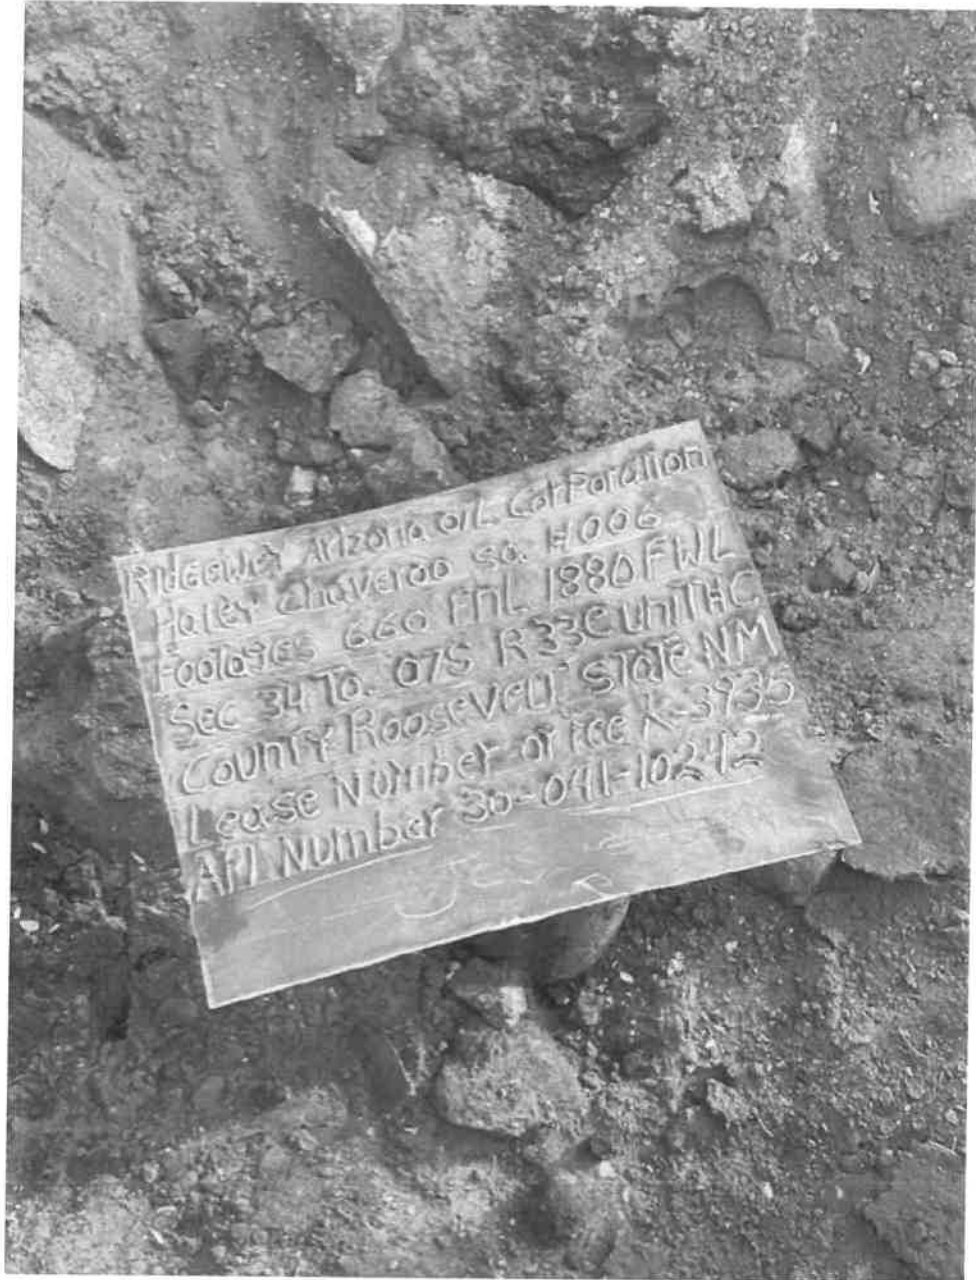 RIdGeWay Arizona OIL CorPoration
Haley Chaveroo SA. #006
Footages 660 FNL 1880 FWL
Sec 34 To. 07S R 33E UNIT#C
County Roosevelt STaTe NM
Lease Number or Fee K-3935
API Number 30-041-10242